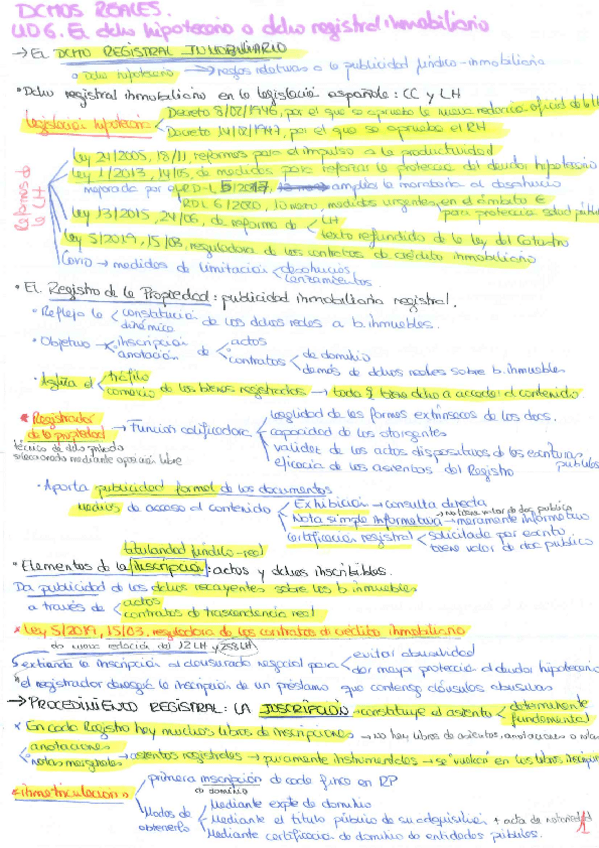 DCHOS REALES.
UD 6. El dcho hipotecario o dcho registral inmobiliario
→ EL DCHO REGISTRAL INMOBILIARIO
Dcho hipotecario → reglas relativas a la publicidad jurídico-inmobiliaria
• Dcho registral inmobiliario en la legislación española: CC y LH
Legislación hipotecaria
Decreto 8/02/1946, por el que se aprueba la nueva redacción oficial de la LH
Decreto 14/02/1947, por el que se aprueba el RH
Reformas a la LH
Ley 24/2005, 18/11, reformas para el impulso a la productividad
Ley 1/2013, 14/05, de medidas para reforzar la protección del deudor hipotecario
mejorada por el RD-L 5/2017, amplía la moratoria al desahucio
RDL 6/2020, 10 marzo, medidas urgentes, en el ámbito E
para protección salud públ
Ley 13/2015, 24/06, de reforma de
LH
texto refundido de la ley del Catastro
Ley 5/2019, 15/03, reguladora de los contratos de crédito inmobiliario
Covid → medidas de limitación
desahucios
lanzamientos.
• El Registro de la Propiedad: publicidad inmobiliaria registral.
• Refleja la
constitución
dinámica
de los dchos reales a b. inmuebles.
• Objetivo →
inscripción
anotación
de
actos
contratos
de dominio
demás de dchos reales sobre b. inmuebles
• Agiliza el
tráfico
comercio
de los bienes registrados → todo q tiene dcho a acceder al contenido.
* Registrador de la propiedad → Función calificadora
técnico de dcho privado
seleccionado mediante oposición libre
legalidad de las formas extrínsecas de los docs.
capacidad de los otorgantes
validez de los actos dispositivos de las escrituras públicas
eficacia de los asientos del Registro
• Aporta publicidad formal de los documentos
Medios de acceso al contenido
Exhibición → consulta directa
→ no tiene valor de doc público
Nota simple informativa → meramente informativo
Certificación registral
solicitada por escrito
tiene valor de doc público
titularidad jurídico-real
• Elementos de la inscripción: actos y dchos inscribibles.
Da publicidad de los dchos recayentes sobre los b inmuebles
a través de
actos
contratos de trascendencia real
* Ley 5/2019, 15/03, reguladora de los contratos de crédito inmobiliario
da nueva redacción del 12 LH y 258 LH
extiende la inscripción al clausulado negocial para
evitar abusividad
dar mayor protección al deudor hipotecario
el registrador denegará la inscripción de un préstamo que contenga cláusulas abusivas
→ PROCEDIMIENTO REGISTRAL: LA INSCRIPCIÓN → constituye el asiento
determinante
fundamental
* En cada Registro hay muchos libros de inscripciones → no hay libros de asientos, anotaciones o notas
anotaciones
notas marginales
→ asientos registrales → puramente instrumentales → se "vuelcan" en los libros inscripc
* Inmatriculación
primera inscripción de cada finca en RP
de dominio
Modos de obtenerla
Mediante expte de dominio
Mediante el título público de su adquisición + acta de notoriedad
Mediante certificación de dominio de entidades públicas.
1